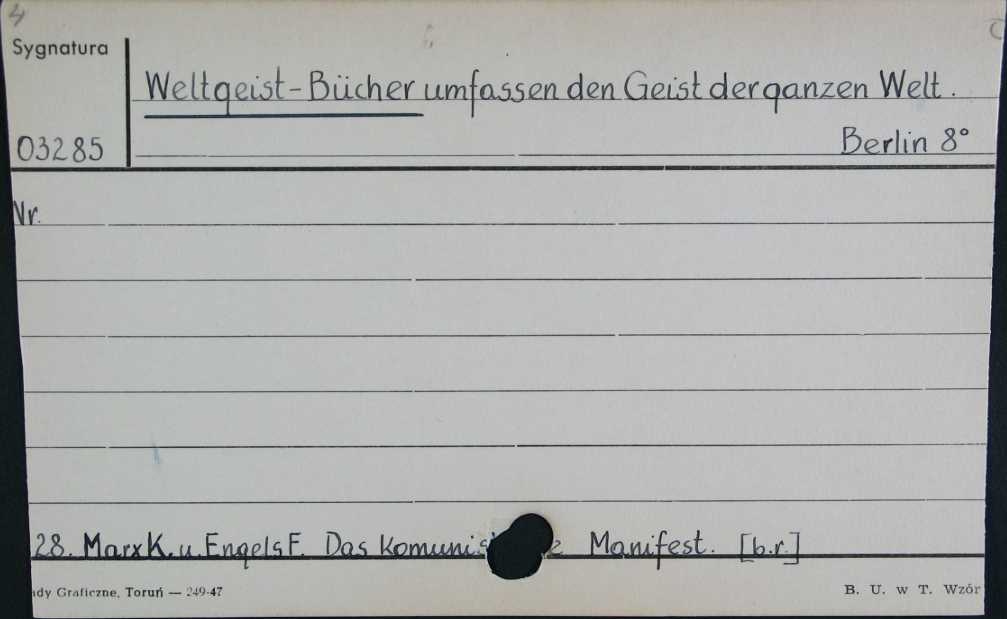 4
Sygnatura
Weltgeist-Bücher umfassen den Geist der ganzen Welt.
03285
Berlin 8°
Nr.
28. Marx K. u. Engels F. Das Manifest. [b.r.]
Graficzne, Toruń — 249-47
B. U. w T. Wzór